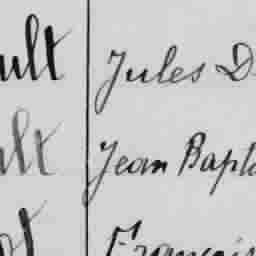 ult Jules D
ult Jean Bapt
t François